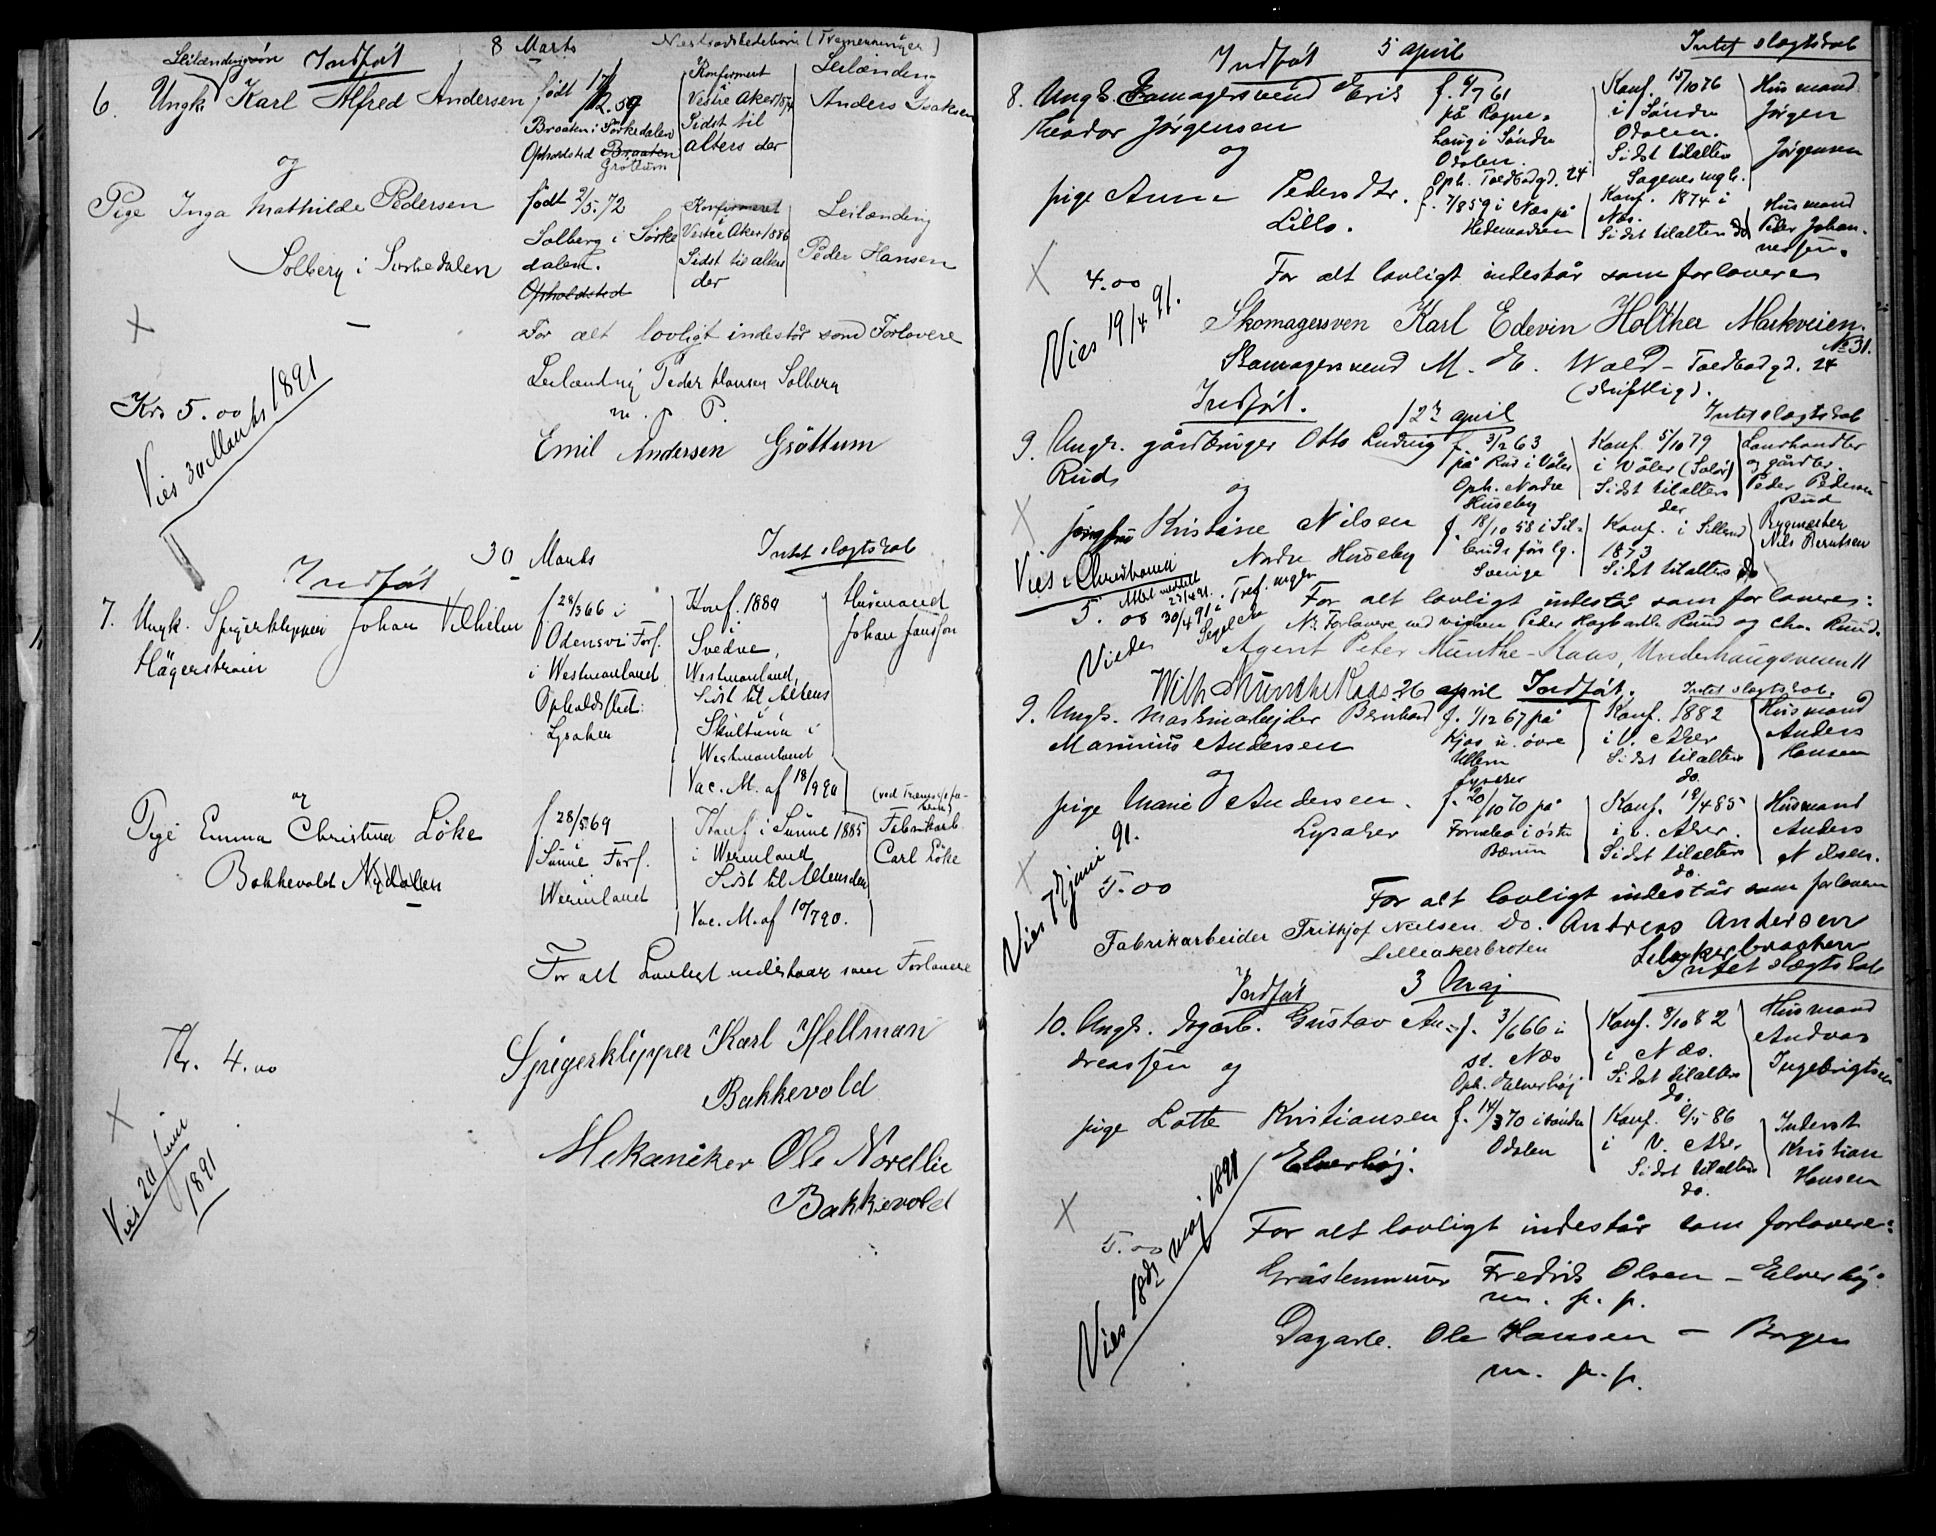 Leilændingssøn Indført 8 Marts Næstsødskedebørn (Tremenninger)
6. Ungk. Karl Alfred Andersen
født 17/12.59
Braaten i Sørkedalen
Opholdsted Braaten
Grøttum
Konfirmert
Vestre Aker 1874
Sidst til
alters der
Leilænding
Anders Isaksen
og
Pige Inga Mathilde Pedersen
Solberg i Sørkedalen
født 2/5.72
Solberg i Sørke
dalen.
Opholdsted
Konfirmeret
i
Vestre Aker 1886
Sidst til alters
der
Leilænding
Peder Hansen
For alt lovligt indestår som Forlovere
Leilænding Peder Hansen Solberg
m. p. P.
Emil Andersen Gröttum
Krs 5.00
Vies 30 Marts 1891
Indført 30 Marts Intet slægtskab
7. Ungk. Spigerklipper Johan Vilhelm
Hägerstrain
f. 28/3 66 i
Odensvi Fors.
i Westmanland
Opholdssted:
Lysaker
Konf. 1880
i
Svedve,
Westmanland,
Sidst til Alters
i
Skultuna i
Westmanland
Vac. M. af 18/9 90
Husmand
Johan Jansson
og
Pige Emma Christina Löke
Bakkevold Nydalen
f. 28/5 69
Sunne Fors.
Wermland
Konf. i Sunne 1885
i Wermland
Sidst til Alters der
Vac. M. af 10/7 90.
Fabrikarb.
Carl Löke
For alt Lovligt indestaar som Forlovere
Spigerklipper Karl Hellman
Bakkevold
Mekaniker Ole Norellie
Bakkevold
Kr. 4.00
Vies 20 juni
1891
Indført 5 april Intet slægtskab
8. Ungk. Skomagersvend Eris
Theodor Jørgensen
f. 6/7 61
på Rogne-
haug i Søndre
Odalen.
Oph. Toldbodgd. 24
Konf. 15/10 76
i Søndre
Odalen.
Sidst til alters
Sagenes mgh.
Husmand
Jørgen
Jørgensen
og
pige Anna Pedersdtr.
Lillo.
f. 7/8 59 i Næs på
Hedemarken
Konf. 1874 i
Næs.
Sidst til alters do
Husmand
Peder Johan-
nessen.
4.00
Vies 19/4 91.
For alt lovligt indestår som forlovere
Skomagersven Karl Edevin Holther Markveien
No 31.
Skomagersvend M. E. Wold - Toldbodgd. 24
(skriftlig).
Indført. 12te april Intet slægtskab
9. Ungk. gårdbruger Otto Ludvig
Rud
f. 3/2 63
på Rud i Våler
Oph. Nordre
Huseby
Konf. 5/10 79
i Våler (Solør)
Sidst til alters
der
Landhandler
og gårdbr.
Peder Pedersen
Rud
og
jomfru Kristine Nilsen
Nordre Huseby
f. 18/10 58 i Sil-
bruds förs lg.
Sverige
Konf. i Sillerud
1873
Sidst til alters do
Bygmester
Nils Berntsen
Vies i
5.00
For alt lovligt indestår som forlovere:
Ns. Forlovere ved vielsen Peder Hagbarth Ruud og Chr. Ruud.
Agent Peter Munthe-Kaas, Underhaugsveien 11
Wilh. Munthe Kaas
26 april Indført. Intet slægtskab.
9. Ungk. maskinarbejder Bernhard
Marinius Andersen
f. 1/12 67 på
Kjos u. øvre
Ullern
Lysaker
Konf. 1882
i V. Aker
Sidst til alters
do.
Husmand
Anders
Hansen
og
pige Marie Andersen.
Lysaker
f. 20/10 70 på
Fornebo i østre
Bærum
Konf. 19/4 85
i v. Aker.
Sidst til alters
do.
Husmand
Anders
Nilsen.
5.00
For alt lovligt indestår som forlovere
Fabrikarbeider Fritkjof Nielsen Do. Andreas Andersen
Lilleakerbroten Lilleakerbraathen
Indført 3 Maj Intet slægtskab
10. Ungk. dagarb. Gustav An-
dreassen og
f. 3/1 66 i
st. Næs
Oph. Elverhöj
Konf. 8/10 82
i Næs.
Sidst til alters
do.
Husmand
Andreas
Ingebrigtsen
pige Lotte Kristiansen
Elverhöj.
f. 14/3 70 i söndre
Odalen
Konf. 2/5 86
i V. Aker
Sidst til alters
do.
Inderst
Kristian
Hansen
5.00
Vies 18de maj 1891
For alt lovligt indestår som forlovere:
Gråstensmurer Fredrik Olsen - Elverhöj.
m. p. p.
Dagarb. Ole Hansen - Borgen
m. p. p.